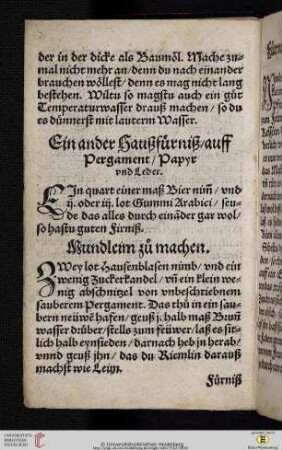 der in der dicke als Baumöl. Mache zu-
mal nicht mehr an/denn du nach einander
brauchen wöllest/denn es mag nicht lang
bestehen. Wiltu so magstu auch ein güt
Temperaturwasser drauß machen/so du
es dünnerst mit lauterm Wasser.
Ein ander Haußfürniß/auff
Pergament/Papyr
vnd Leder.
EIn quart einer maß Bier nim̃/vnd
ij. oder iij. lot Gummi Arabici/seu-
de das alles durch einãder gar wol/
so hastu guten Firniß.
Mundleim zů machen.
ZWey lot Hausenblasen nimb/vnd ein
wenig Zuckerkandel/vñ ein klein we-
nig abschnitzel von vnbeschriebnem
sauberem Pergament. Das thů in ein sau-
bern neüwẽ hafen/geuß j. halb maß Brun̄
wasser drüber/stells zum feüwer/laß es sit-
lich halb eynsieden/darnach heb jn herab/
vnnd geuß jhn/das du Riemlin darauß
machst wie Leim.
Fürniß
UNIVERSITÄTS-
BIBLIOTHEK
HEIDELBERG
© Universitätsbibliothek Heidelberg